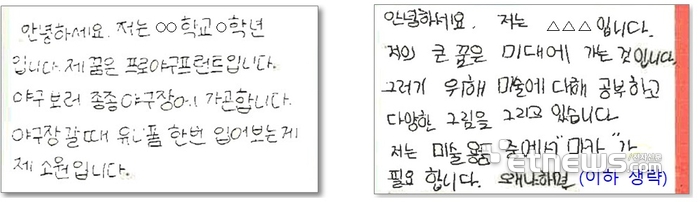 안녕하세요. 저는 ○○학교○학년
입니다. 제 꿈은 프로야구프런트입니다.
야구 보러 종종 야구장에 가곤합니다.
야구장 갈때 유니폼 한번 입어보는게
제 소원입니다.
안녕하세요. 저는 △△△입니다.
저의 큰 꿈은 미대에 가는 것입니다.
그러기 위해 미술에 대해 공부하고
다양한 그림을 그리고 있습니다
저는 미술 용품 중에서 "마카"가
필요 합니다. 왜냐하면 (이하 생략)
etnews.com 전자신문